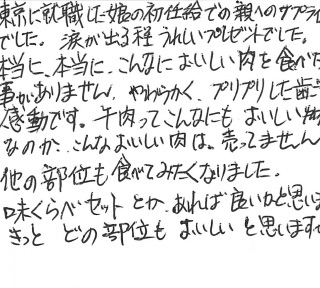 東京に就職した娘の初仕給での親へのサプライ
でした。涙が出る程うれしいプレゼントでした。
本当に、本当に、こんなにおいしい肉を食べた
事がありません。やわらかく、プリプリした歯ご
感動です。牛肉ってこんなにも おいしい物
なのか、こんなおいしい肉は、売ってません
他の部位も食べてみたくなりました。
味くらべセット とか、あれば 良いかと思いま
きっと どの部位も おいしい と思いますで